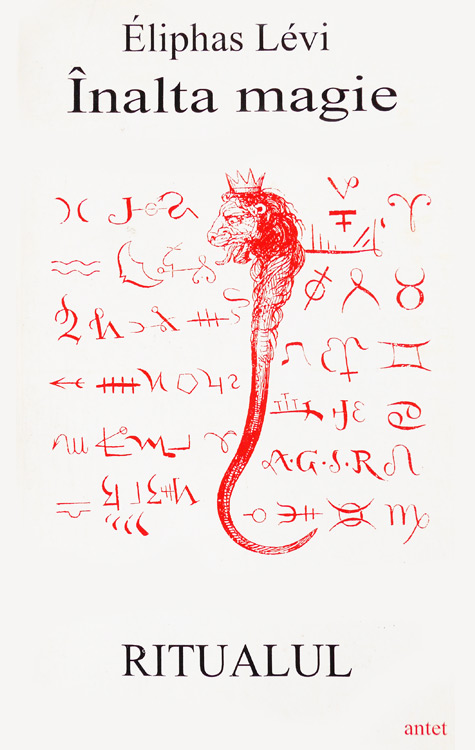 Éliphas Lévi
Înalta magie
A·G·S·R
RITUALUL
antet